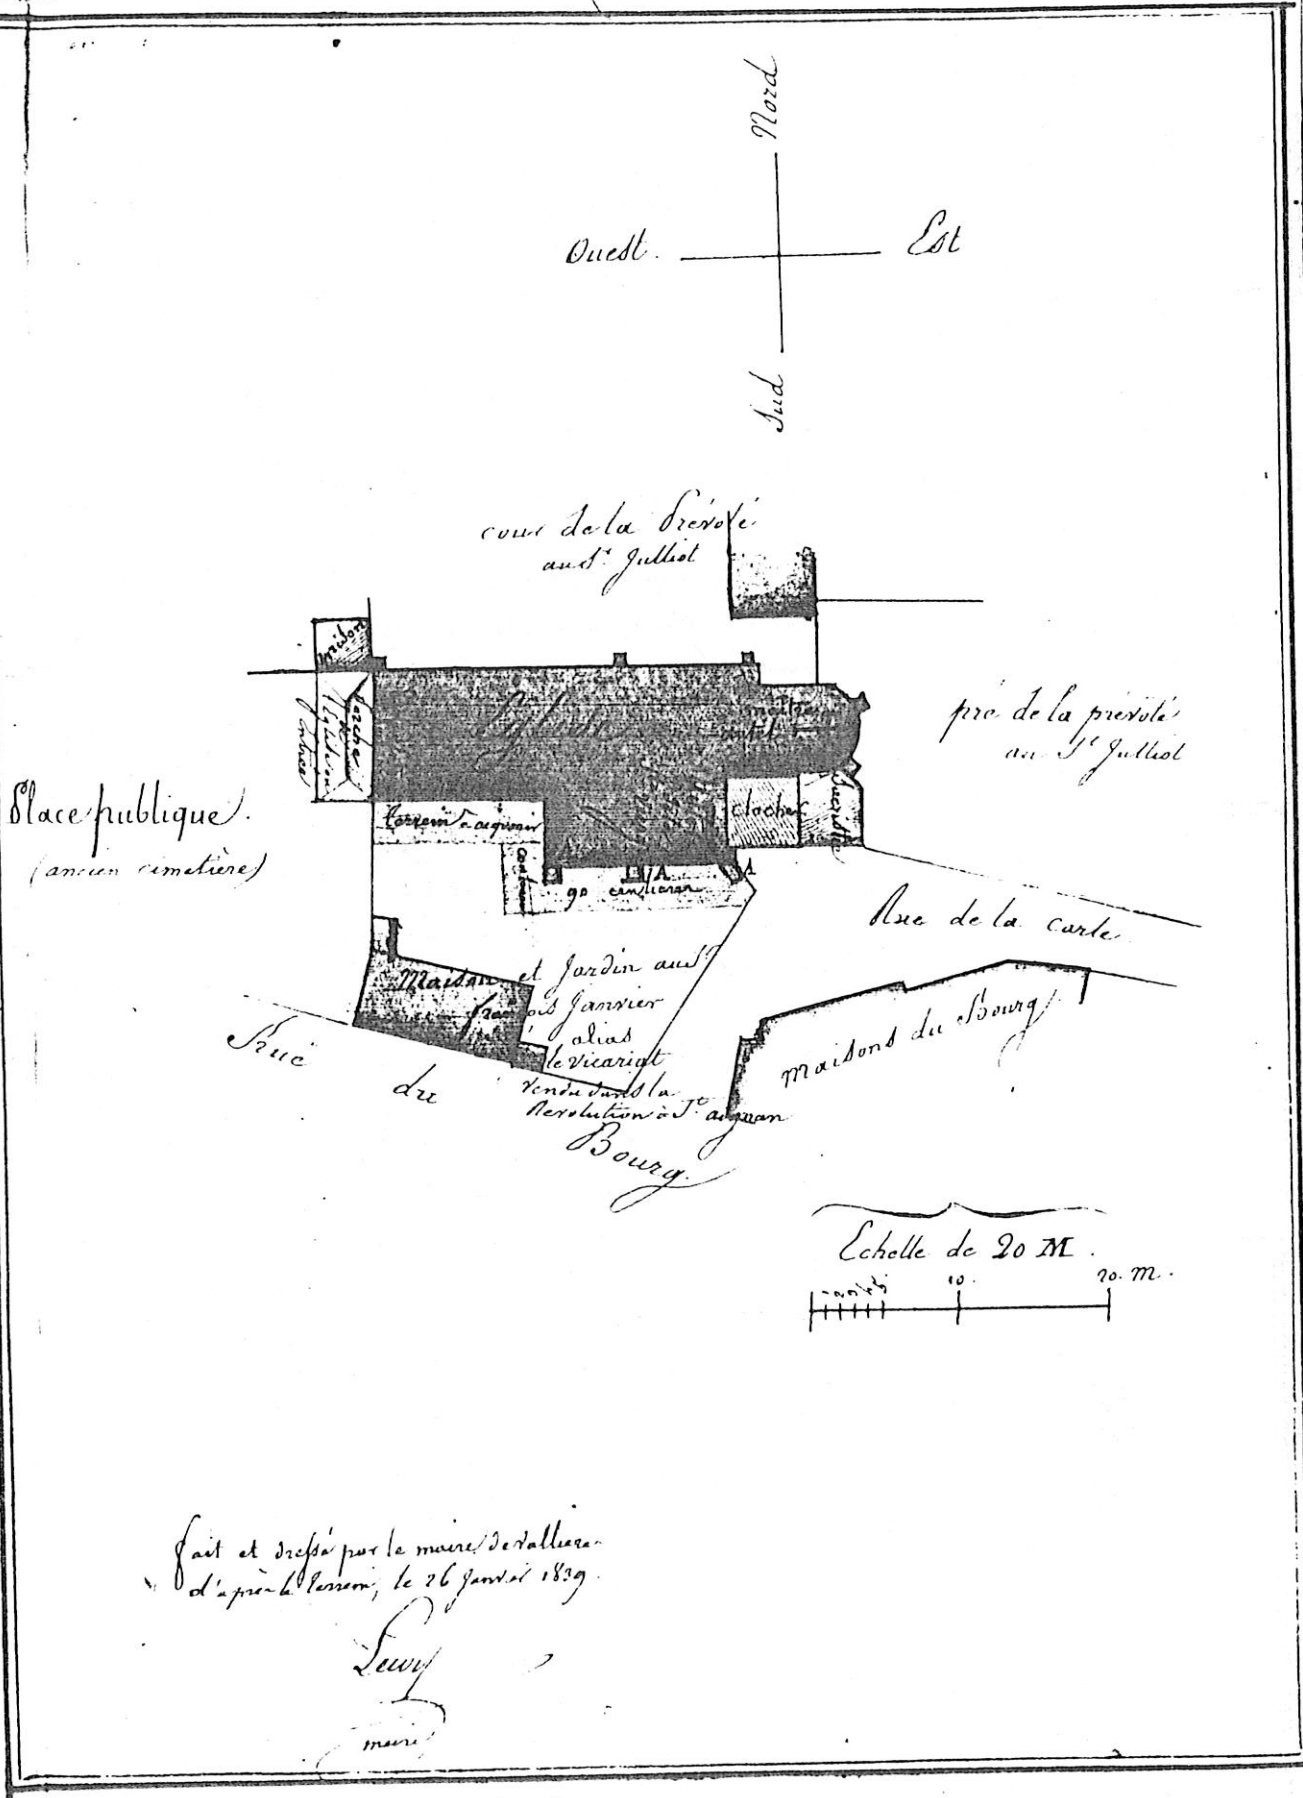 Nord
Ouest. Est
Sud
cour de la Prévoté
au Sr. Julliot
prison
porche
entrée
Eglise
maître
autel
pré de la prévoté
au Sr Julliot
Place publique.
(ancien cimetière)
terrein à acquérir
clocher
Sacristie
A A
90 centiares
Rue de la carte
Maison et Jardin au Sr
François Janvier
alias
le vicariat
vendu dans la
Revolution à St. aignan
maisons du Bourg
Rue du Bourg.
Echelle de 20 M.
1 2 3 4 5 10. 20. m.
fait et dressé par le maire de valliere
d'après le terrein, le 26 Janvier 1839.
maire